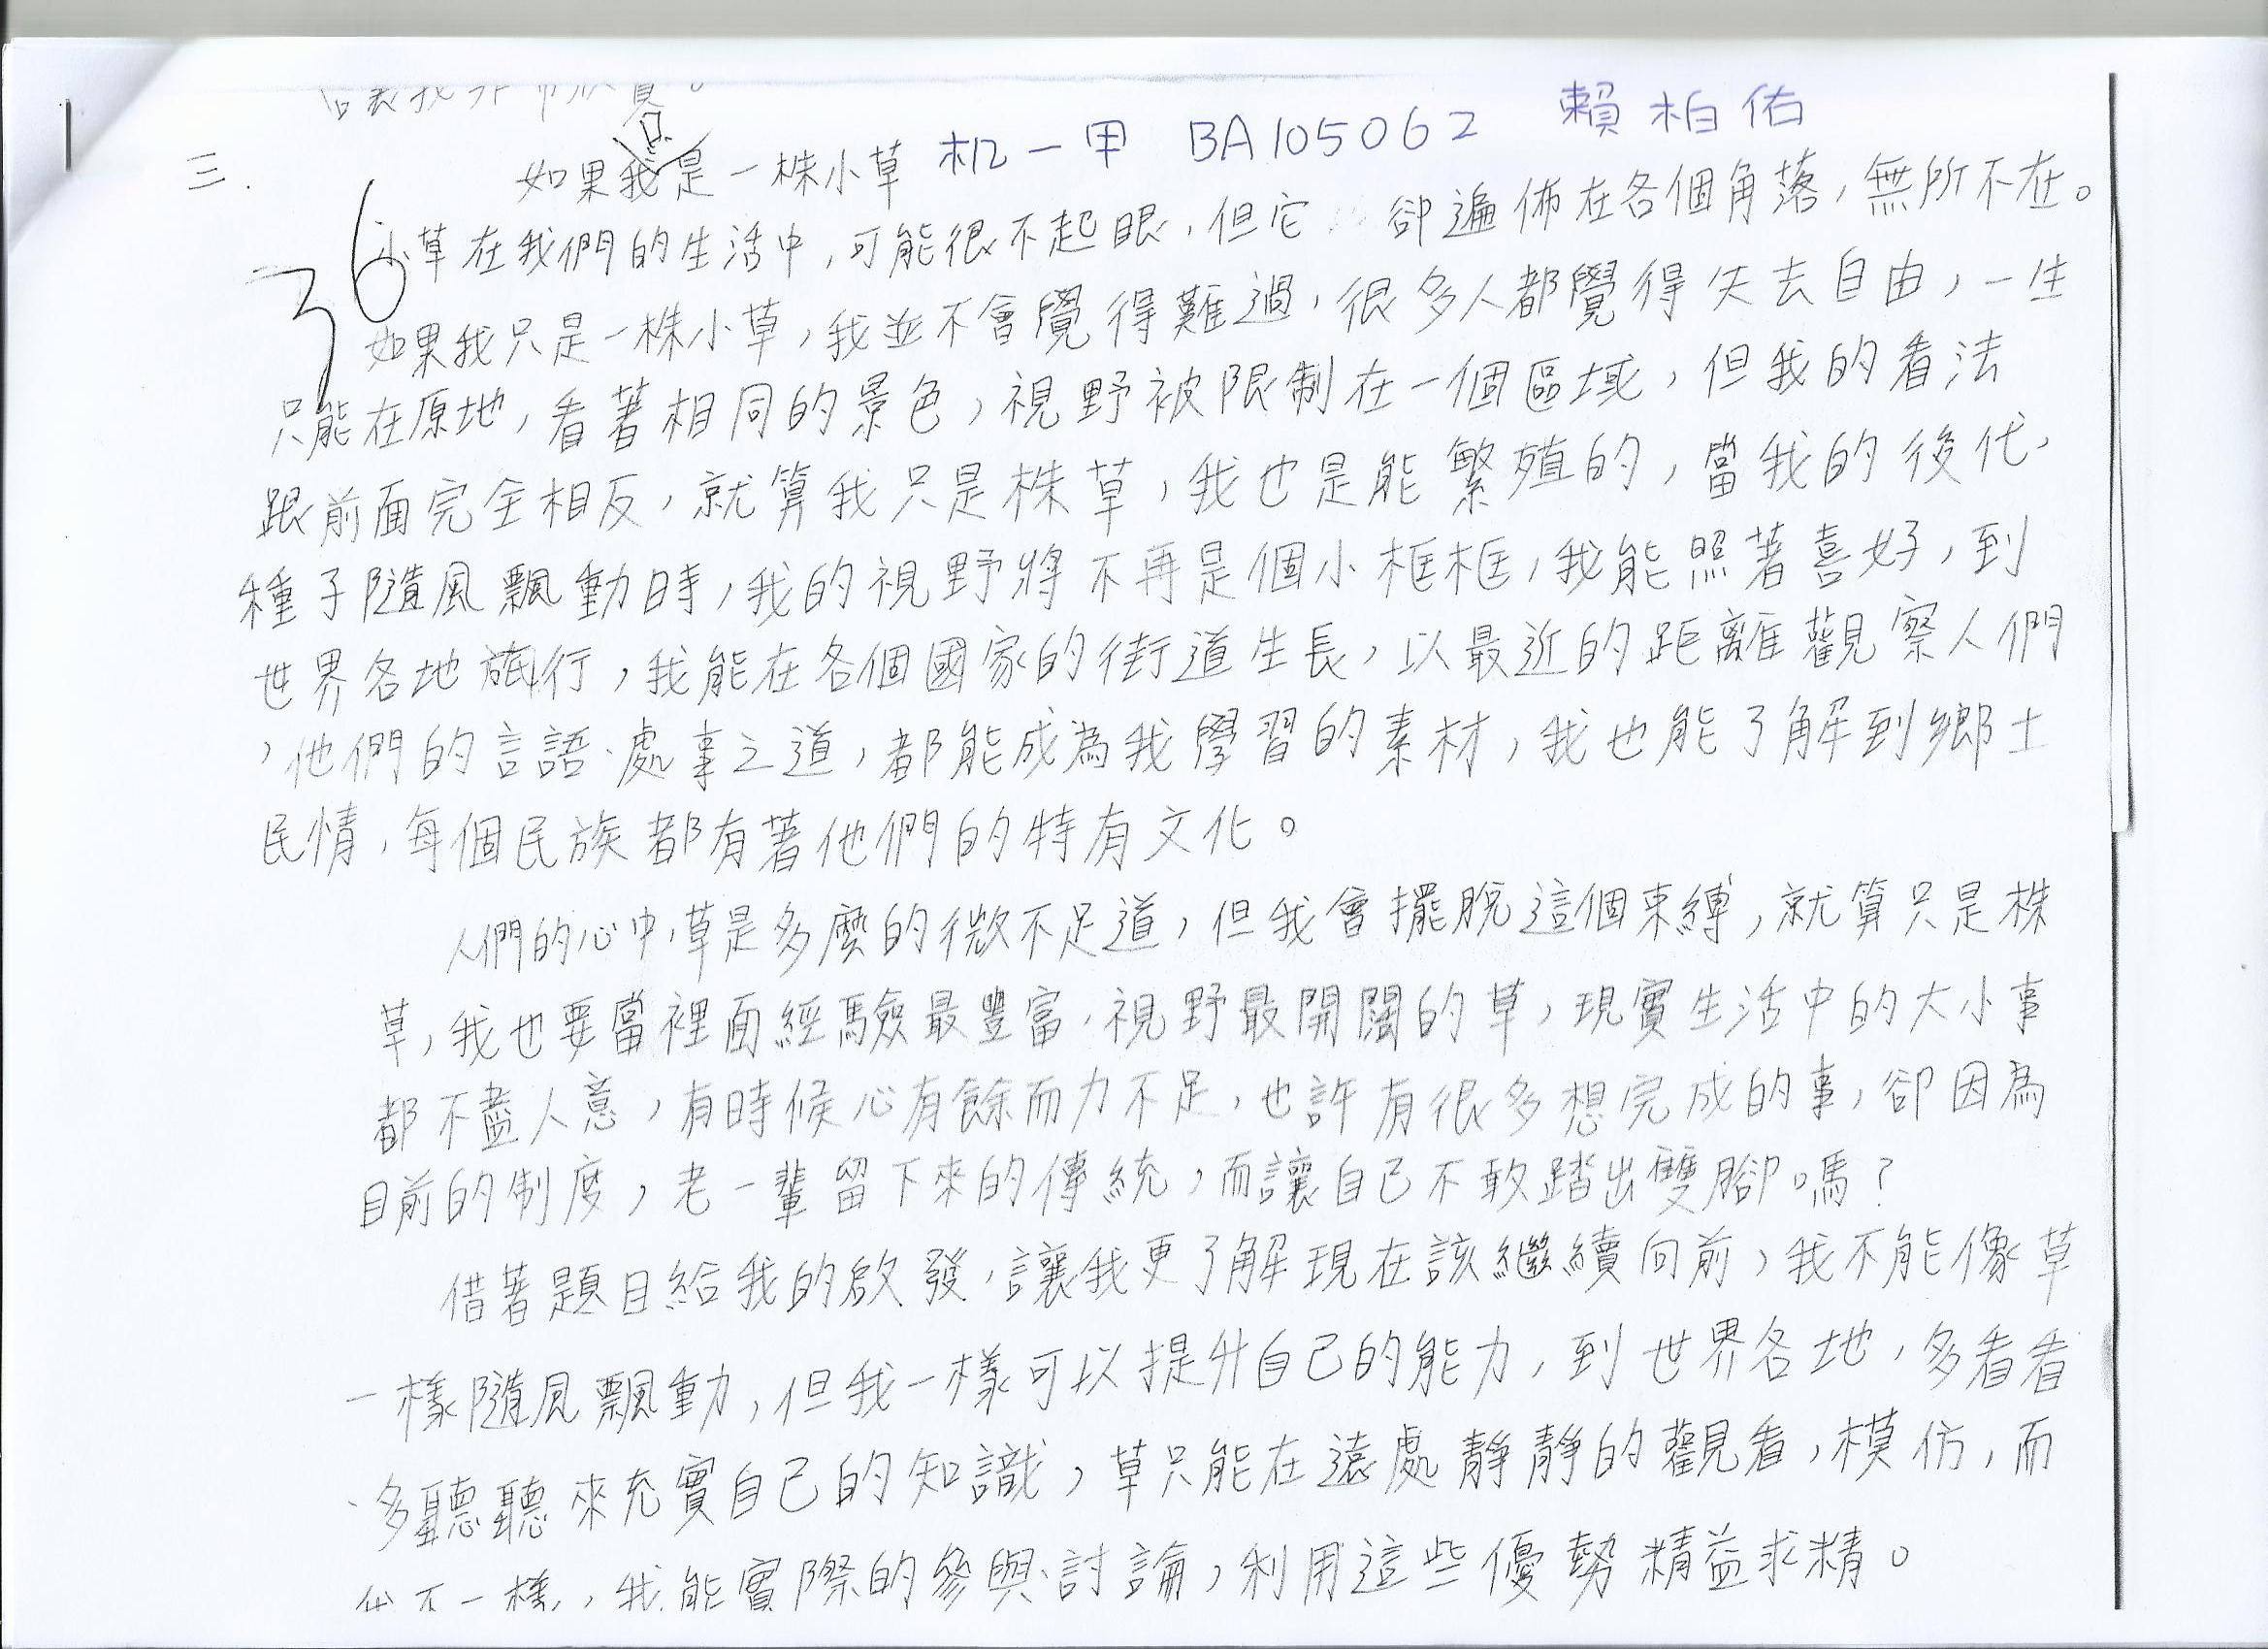 三. 如果我只是一株小草 机一甲 BA105062 賴柏佑
36
小草在我們的生活中,可能很不起眼,但它卻遍佈在各個角落,無所不在。
如果我只是一株小草,我並不會覺得難過,很多人都覺得失去自由,一生
只能在原地,看著相同的景色,視野被限制在一個區域,但我的看法
跟前面完全相反,就算我只是株草,我也是能繁殖的,當我的後代、
種子隨風飄動時,我的視野將不再是個小框框,我能照著喜好,到
世界各地旅行,我能在各個國家的街道生長,以最近的距離觀察人們
,他們的言語、處事之道,都能成為我學習的素材,我也能了解到鄉土
民情,每個民族都有著他們的特有文化。
人們的心中,草是多麼的微不足道,但我會擺脫這個束縛,就算只是株
草,我也要當裡面經驗最豐富、視野最開闊的草,現實生活中的大小事
都不盡人意,有時候心有餘而力不足,也許有很多想完成的事,卻因為
目前的制度,老一輩留下來的傳統,而讓自己不敢踏出雙腳嗎?
借著題目給我的啟發,讓我更了解現在該繼續向前,我不能像草
一樣隨風飄動,但我一樣可以提升自己的能力,到世界各地,多看看
、多聽聽來充實自己的知識,草只能在遠處靜靜的觀看,模仿,而
我不一樣,我能實際的參與、討論,利用這些優勢精益求精。